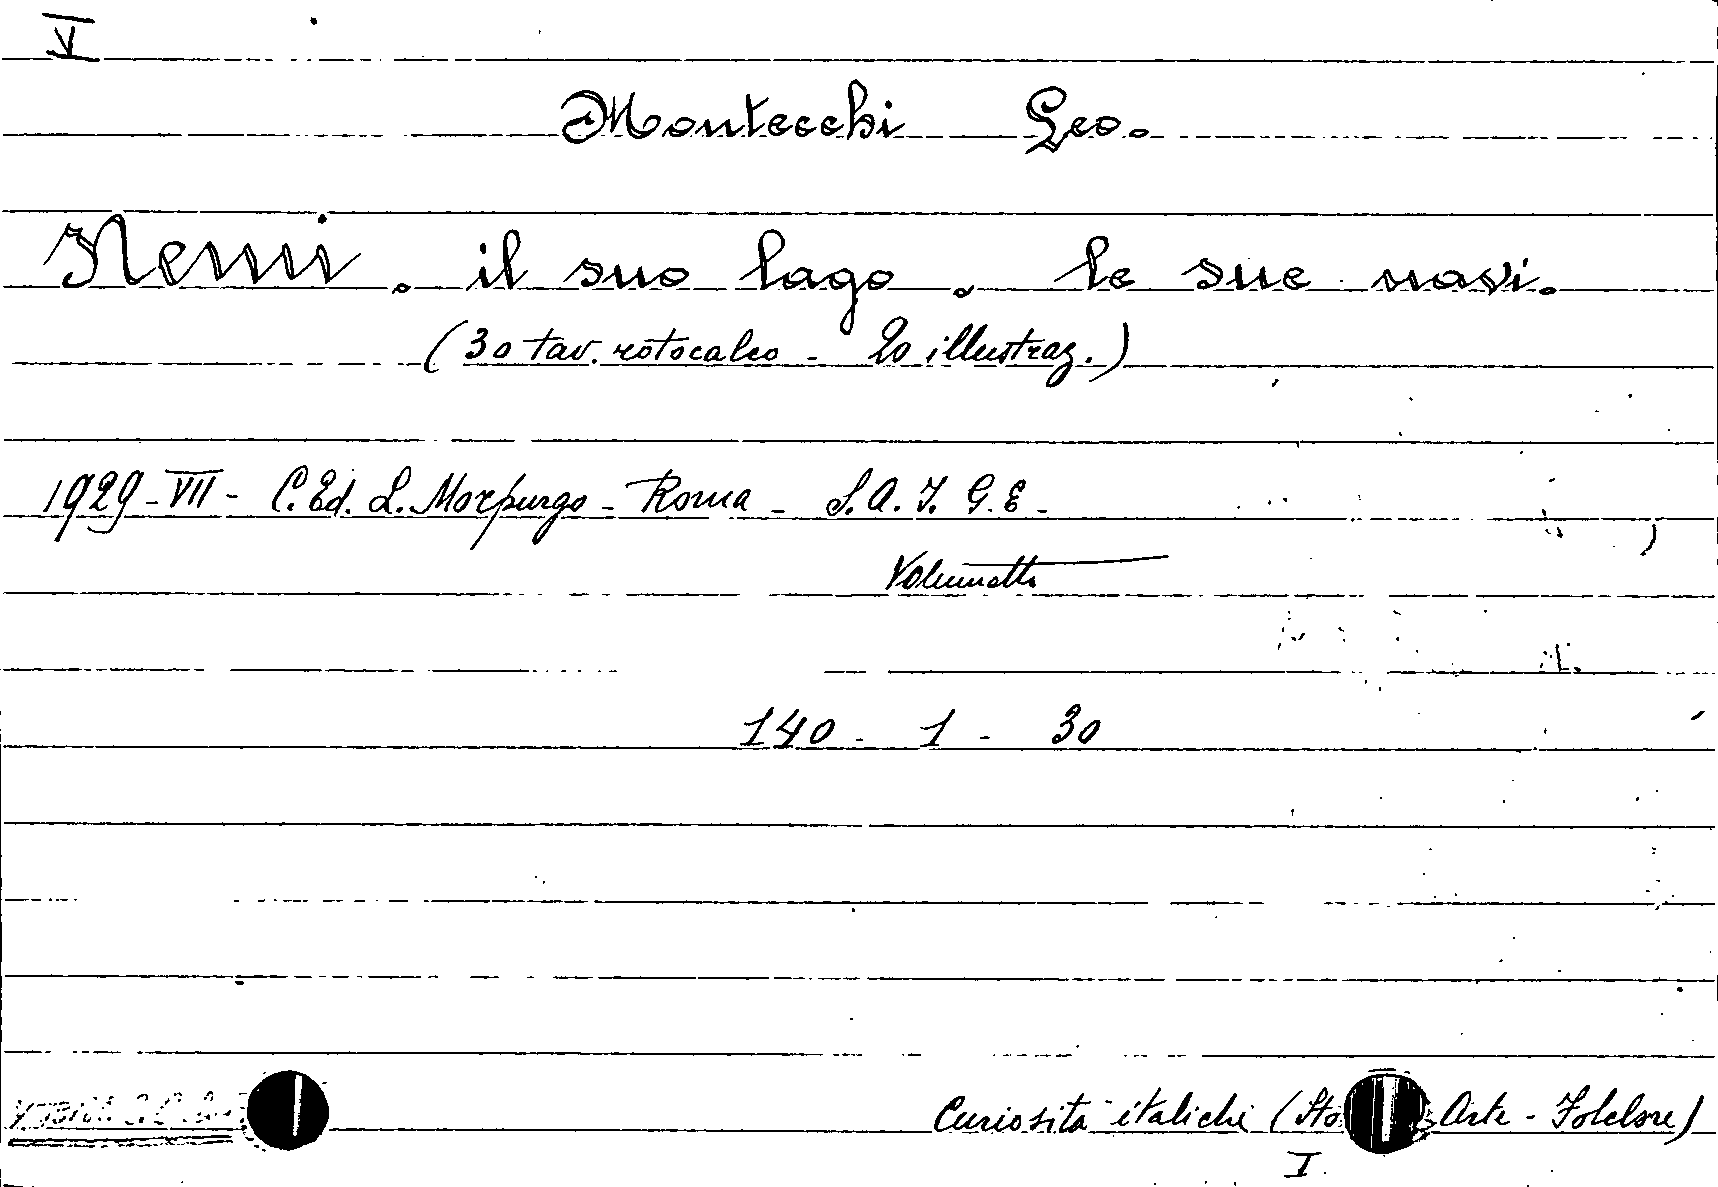 V
Montecchi Leo.
Nemi. il suo lago, le sue navi.
(30 tav. rotocalco - 20 illustraz.)
1929 - VII - C. Ed. L. Morpurgo - Roma - S. A. I. G. E -
Volumetto
140 - 1 - 30
Curiosità italiche (Sto Arte - Folclore)
I